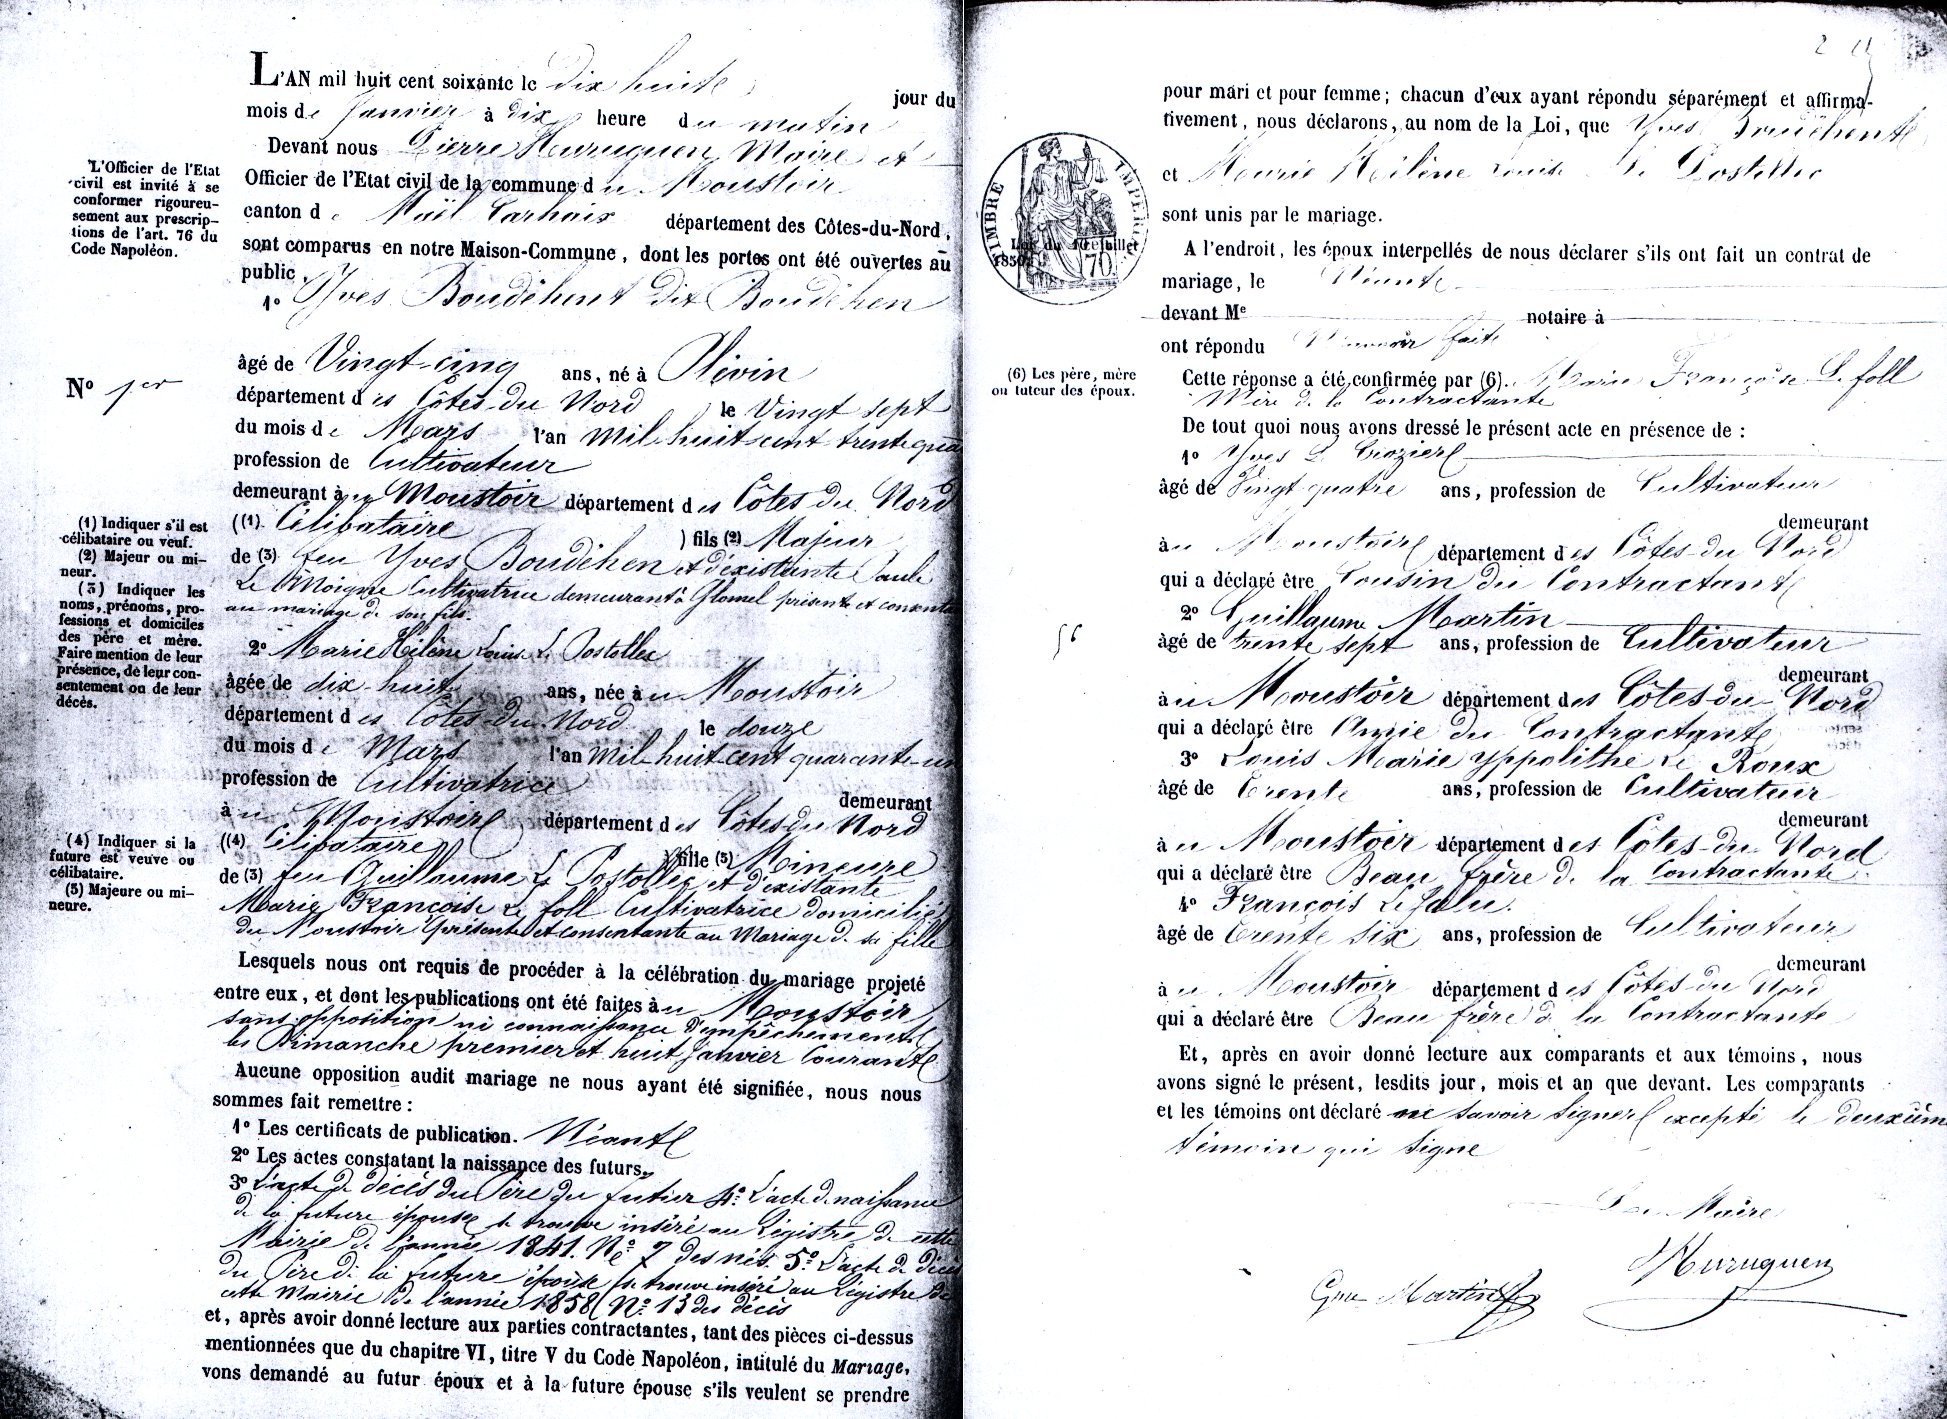 L'AN mil huit cent soixante le dix huite jour du
mois de Janvier à dix heure du matin
Devant nous Pierre Huruguen Maire et
Officier de l'Etat civil de la commune du Moustoir
canton de Maël Carhaix département des Côtes-du-Nord,
sont comparus en notre Maison-Commune, dont les portes ont été ouvertes au
public,
1° Yves Boudéhent dit Boudéhen
âgé de Vingt-cinq ans, né à Plévin
département des Côtes-du Nord le Vingt sept
du mois de Mars l'an Mil huit cent trente qua
profession de Cultivateur
demeurant au Moustoir département des Côtes du Nord
((1) Célibataire ) fils (2) Majeur
de (3) feu Yves Boudéhen et d'existante Paule
Le Moigne Cultivatrice demeurant à Glomel présente et consente
au mariage de son fils.
2° Marie Hélène Louise Le Postollec
âgée de dix-huit ans, née au Moustoir
département des Côtes-du-Nord le douze
du mois de Mars l'an Mil-huit-cent quarante-un
profession de Cultivatrice
demeurant
au Moustoir département des Côtes-du Nord
((4) Célibataire ) fille (5) Mineure
de (3) feu Guillaume Le Postollec et d'existante
Marie Françoise Le foll Cultivatrice domiciliée
du Moustoir présente et consentante au Mariage de sa fille
Lesquels nous ont requis de procéder à la célébration du mariage projeté
entre eux, et dont les publications ont été faites au Moustoir
sans opposition ni connaissance d'empêchements
les Dimanche premier et huit Janvier Courant
Aucune opposition audit mariage ne nous ayant été signifiée, nous nous
sommes fait remettre :
1° Les certificats de publication. Néant
2° Les actes constatant la naissance des futurs.
3° L'acte de décès du Père du futur 4° L'acte de naissance
de la future épouse se trouve inséré au Régistre de cette
Mairie de l'année 1841. N° 7 des nés. 5° L'acte de décès
du Père de la future épouse se trouve inséré au Régistre de
cette Mairie de l'année 1858 N° 13 des décès
et, après avoir donné lecture aux parties contractantes, tant des pièces ci-dessus
mentionnées que du chapitre VI, titre V du Code Napoléon, intitulé du Mariage,
vons demandé au futur époux et à la future épouse s'ils veulent se prendre
L'Officier de l'Etat
civil est invité à se
conformer rigoureu-
sement aux prescrip-
tions de l'art. 76 du
Code Napoléon.
N° 1er
(1) Indiquer s'il est
célibataire ou veuf.
(2) Majeur ou mi-
neur.
(3) Indiquer les
noms, prénoms, pro-
fessions et domiciles
des père et mère.
Faire mention de leur
présence, de leur con-
sentement ou de leur
décès.
(4) Indiquer si la
future est veuve ou
célibataire.
(5) Majeure ou mi-
neure.
2
pour mari et pour femme; chacun d'eux ayant répondu séparément et affirma-
tivement, nous déclarons, au nom de la Loi, que Yves Boudéhent
et Marie Hélène Louise Le Postollec
sont unis par le mariage.
A l'endroit, les époux interpellés de nous déclarer s'ils ont fait un contrat de
mariage, le Néante
devant Me notaire à
ont répondu N'avoir fait
Cette réponse a été confirmée par (6). Marie Françoise Le foll
Mère de la Contractante
De tout quoi nous avons dressé le présent acte en présence de :
1° Yves Le Crozier
âgé de Vingt-quatre ans, profession de Cultivateur
demeurant
au Moustoir département des Côtes-du Nord
qui a déclaré être Cousin du Contractant
2° Guillaume Martin
âgé de trente sept ans, profession de Cultivateur
demeurant
au Moustoir département des Côtes-du-Nord
qui a déclaré être Amie du Contractant
3° Louis Marie Yppolithe Le Roux
âgé de Trente ans, profession de Cultivateur
demeurant
au Moustoir département des Côtes-du-Nord
qui a déclaré être Beau frère de la Contractante
4° François Le Jalu.
âgé de Trente six ans, profession de Cultivateur
demeurant
au Moustoir département des Côtes-du Nord
qui a déclaré être Beau frère de la Contractante
Et, après en avoir donné lecture aux comparants et aux témoins, nous
avons signé le présent, lesdits jour, mois et an que devant. Les comparants
et les témoins ont déclaré ne savoir signer excepté le deuxième
témoin qui signe
Le Maire
Huruguen
Gme Martin
TIMBRE IMPÉRIAL
Loi du 10 Juillet
1850
70
(6) Les père, mère
ou tuteur des époux.
56